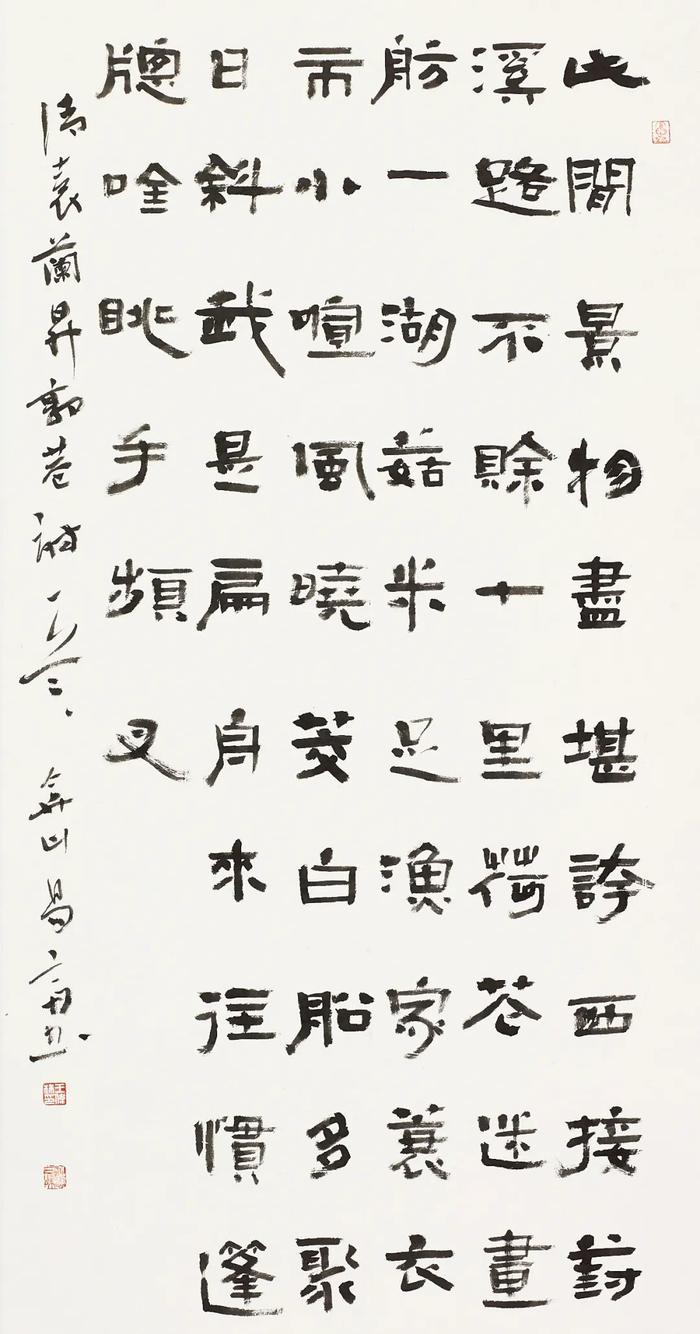 此間景物盡堪誇西接葑
溪路不賒十里荷花迷畫
舫一湖菇米足漁家蓑衣
市小喧風曉茭白船多聚
日斜我是扁舟來往慣篷
牕唫眺手頻叉
清袁蘭昇郭巷詩一首弇山易齋